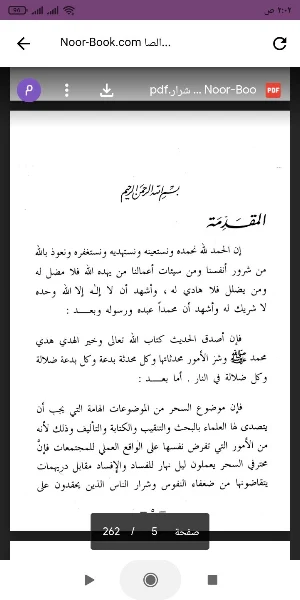 ٣:٠٢ ص
Noor-Book.com الصا...
شرار.pdf ... Noor-Boo
PDF
بسم الله الرحمن الرحيم
المقدمة
إن الحمد لله نحمده ونستعينه ونستهديه ونستغفره ونعوذ بالله
من شرور أنفسنا ومن سيئات أعمالنا من يهده الله فلا مضل له
ومن يضلل فلا هادي له ، وأشهد أن لا إله إلا الله وحده
لا شريك له وأشهد أن محمداً عبده ورسوله وبعــد :
فإن أصدق الحديث كتاب الله تعالى وخير الهدي هدي
محمد ﷺ وشر الأمور محدثاتها وكل محدثة بدعة وكل بدعة ضلالة
وكل ضلالة في النار . أما بعــد :
فإن موضوع السحر من الموضوعات الهامة التي يجب أن
يتصدى لها العلماء بالبحث والتنقيب والكتابة والتأليف وذلك لأنه
من الأمور التي تفرض نفسها على الواقع العملي للمجتمعات فإنَّ
محترفي السحر يعملون ليل نهار للفساد والإفساد مقابل دريهمات
يتقاضونها من ضعفاء النفوس وشرار الناس الذين يحقدون على
صفحة 5 / 262